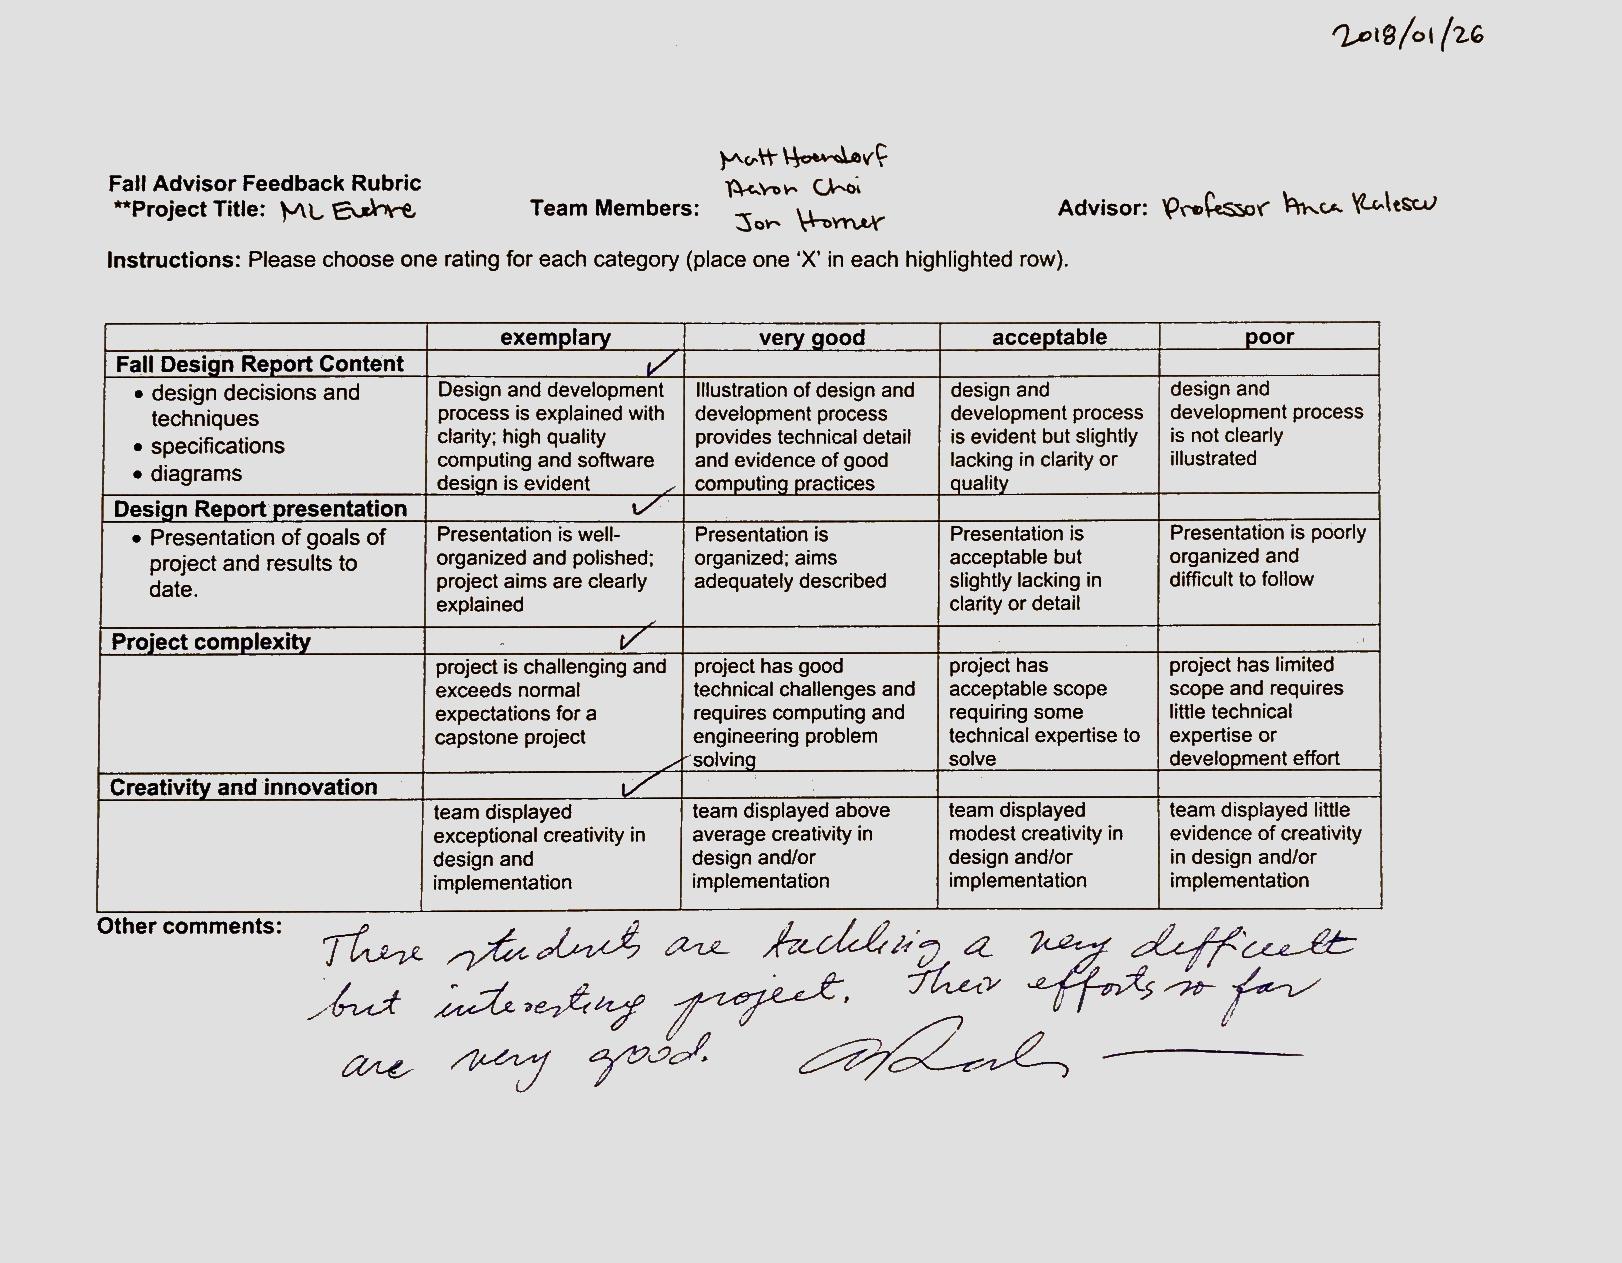 2018/01/26
Matt Hoendorf
Fall Advisor Feedback Rubric
Aaron Choi
**Project Title: ML Euchre Team Members: Advisor: Professor Anca Ralescu
Jon Homer
Instructions: Please choose one rating for each category (place one ‘X’ in each highlighted row).
exemplary very good acceptable poor
Fall Design Report Content ✓
• design decisions and
techniques
• specifications
• diagrams
Design and development
process is explained with
clarity; high quality
computing and software
design is evident
Illustration of design and
development process
provides technical detail
and evidence of good
computing practices
design and
development process
is evident but slightly
lacking in clarity or
quality
design and
development process
is not clearly
illustrated
Design Report presentation ✓
• Presentation of goals of
project and results to
date.
Presentation is well-
organized and polished;
project aims are clearly
explained
Presentation is
organized; aims
adequately described
Presentation is
acceptable but
slightly lacking in
clarity or detail
Presentation is poorly
organized and
difficult to follow
Project complexity ✓
project is challenging and
exceeds normal
expectations for a
capstone project
project has good
technical challenges and
requires computing and
engineering problem
solving
project has
acceptable scope
requiring some
technical expertise to
solve
project has limited
scope and requires
little technical
expertise or
development effort
Creativity and innovation ✓
team displayed
exceptional creativity in
design and
implementation
team displayed above
average creativity in
design and/or
implementation
team displayed
modest creativity in
design and/or
implementation
team displayed little
evidence of creativity
in design and/or
implementation
Other comments:
These students are tackling a very difficult
but interesting project. Their efforts so far
are very good.